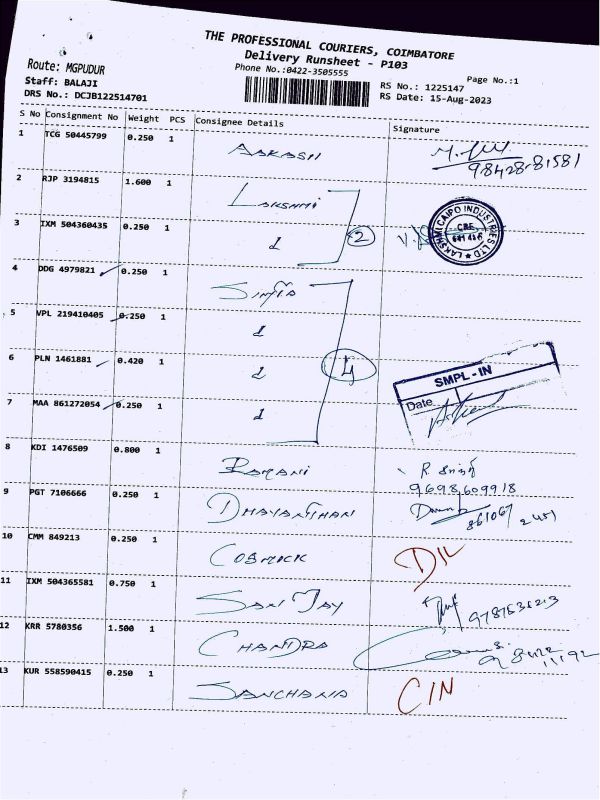 THE PROFESSIONAL COURIERS, COIMBATORE
Delivery Runsheet - P103
Phone No.:0422-3505555
Page No.:1
Route: MGPUDUR
Staff: BALAJI
DRS No.: DCJB122514701
RS No.: 1225147
RS Date: 15-Aug-2023
S No Consignment No Weight PCS Consignee Details Signature
1 TCG 50445799 0.250 1 AAKASH
98428-81581
2 RJP 3194815 1.600 1 LAKSHMI
3 IXM 504360435 0.250 1 1 2
LAKSHMI CAIPO INDUSTRIES LTD
CBE
4 DDG 4979821 0.250 1
5 VPL 219410405 0.250 1 1
6 PLN 1461881 0.420 1 1 4
SMPL-IN
Date
7 MAA 861272054 0.250 1 1
8 KDI 1476509 0.800 1 RAMANI R.
9698609918
9 PGT 7106666 0.250 1 DHAYANITHAN
10 CMM 849213 0.250 1 COSMICK D/L
11 IXM 504365581 0.750 1 SANJAY
12 KRR 5780356 1.500 1 CHANDRA
98422 11192
13 KUR 558590415 0.250 1 SANCHANA C/N